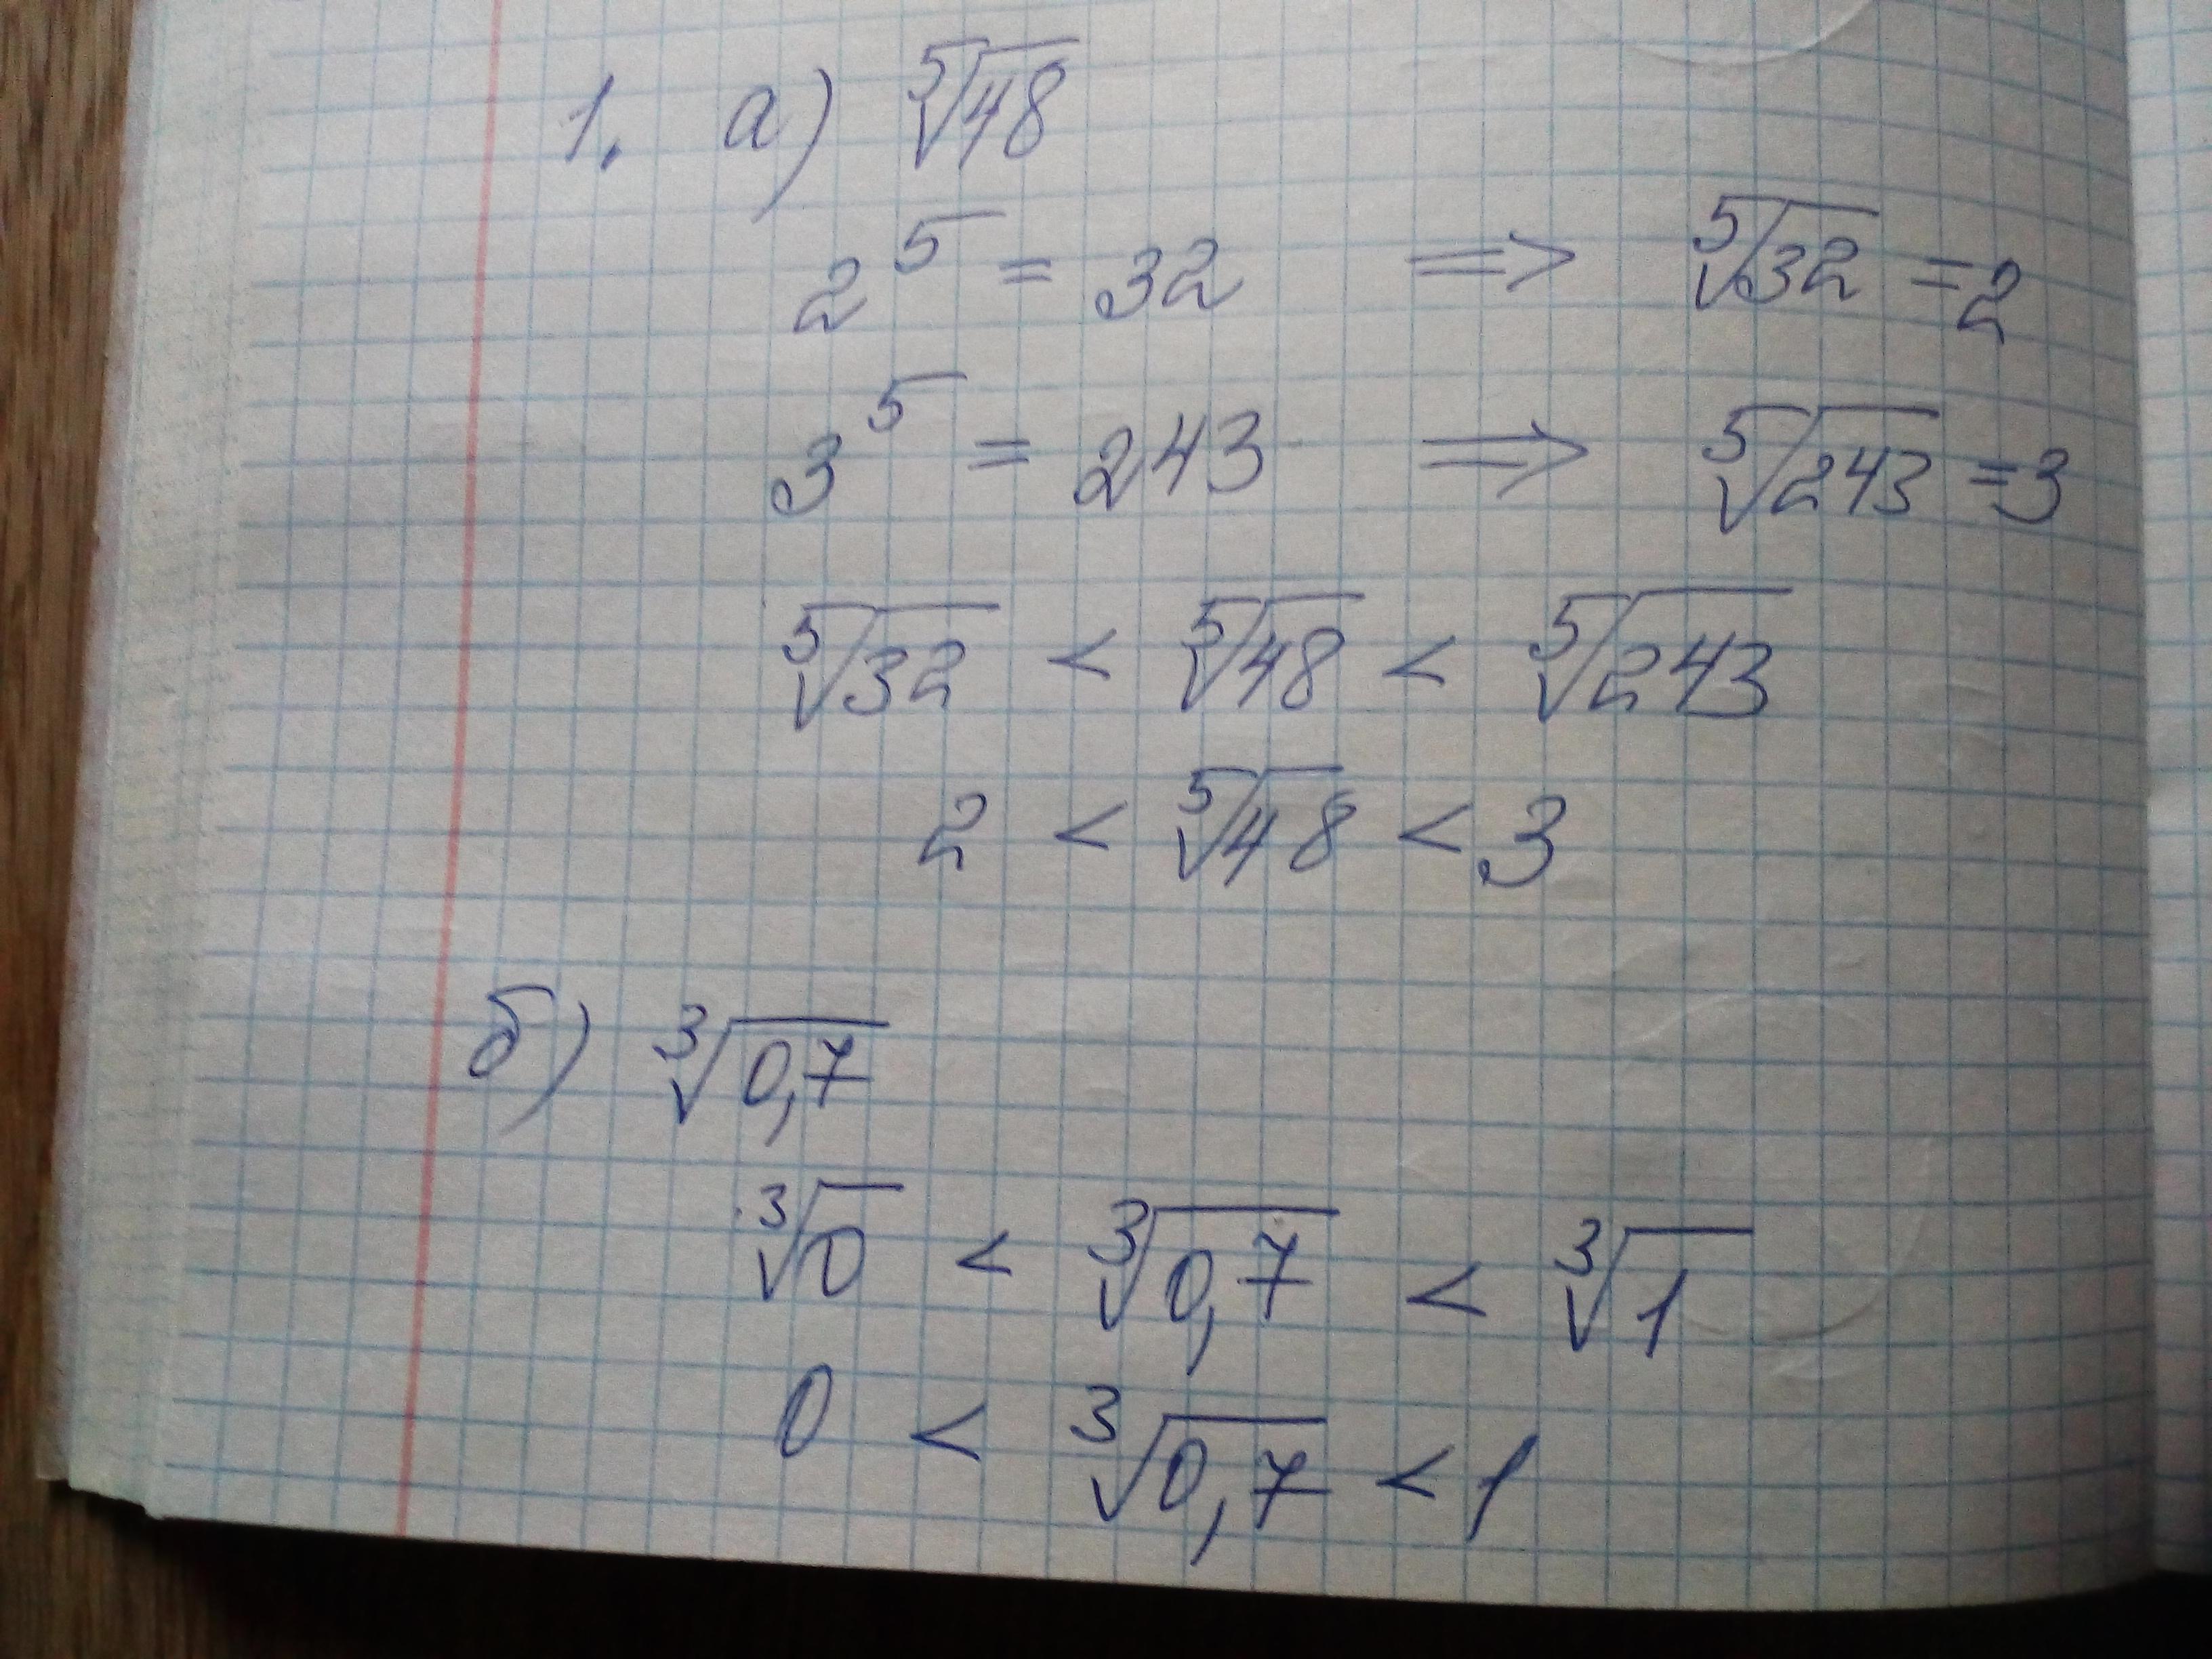 1. а) ⁵√48
2⁵ = 32 => ⁵√32 = 2
3⁵ = 243 => ⁵√243 = 3
⁵√32 < ⁵√48 < ⁵√243
2 < ⁵√48 < 3
б) ³√0,7
³√0 < ³√0,7 < ³√1
0 < ³√0,7 < 1